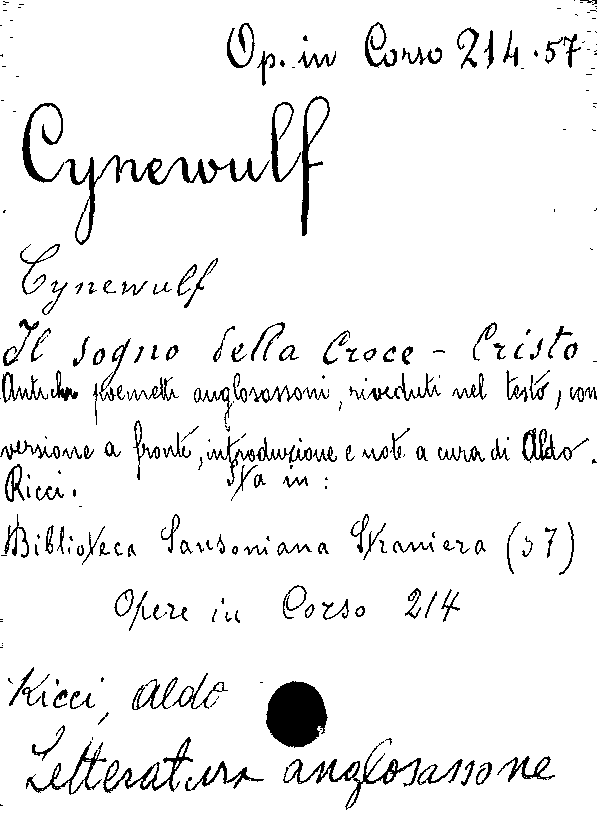 Op. in Corso 214.57
Cynewulf
Cynewulf
Il sogno della Croce - Cristo.
Antichi poemetti anglosassoni, riveduti nel testo, con
versione a fronte, introduzione e note a cura di Aldo
Ricci. Sta in:
Biblioteca Sansoniana Straniera (57)
Opere in Corso 214
Ricci, Aldo
Letteratura anglosassone